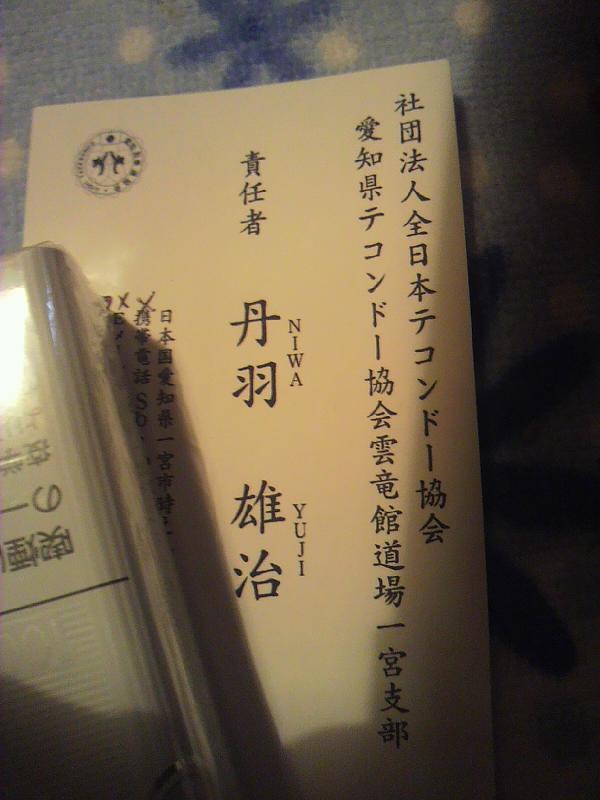 社団法人全日本テコンドー協会
愛知県テコンドー協会雲竜館道場一宮支部
責任者
丹羽 雄治
NIWA YUJI
日本国愛知県一宮市時
携帯電話
喫煙
の一